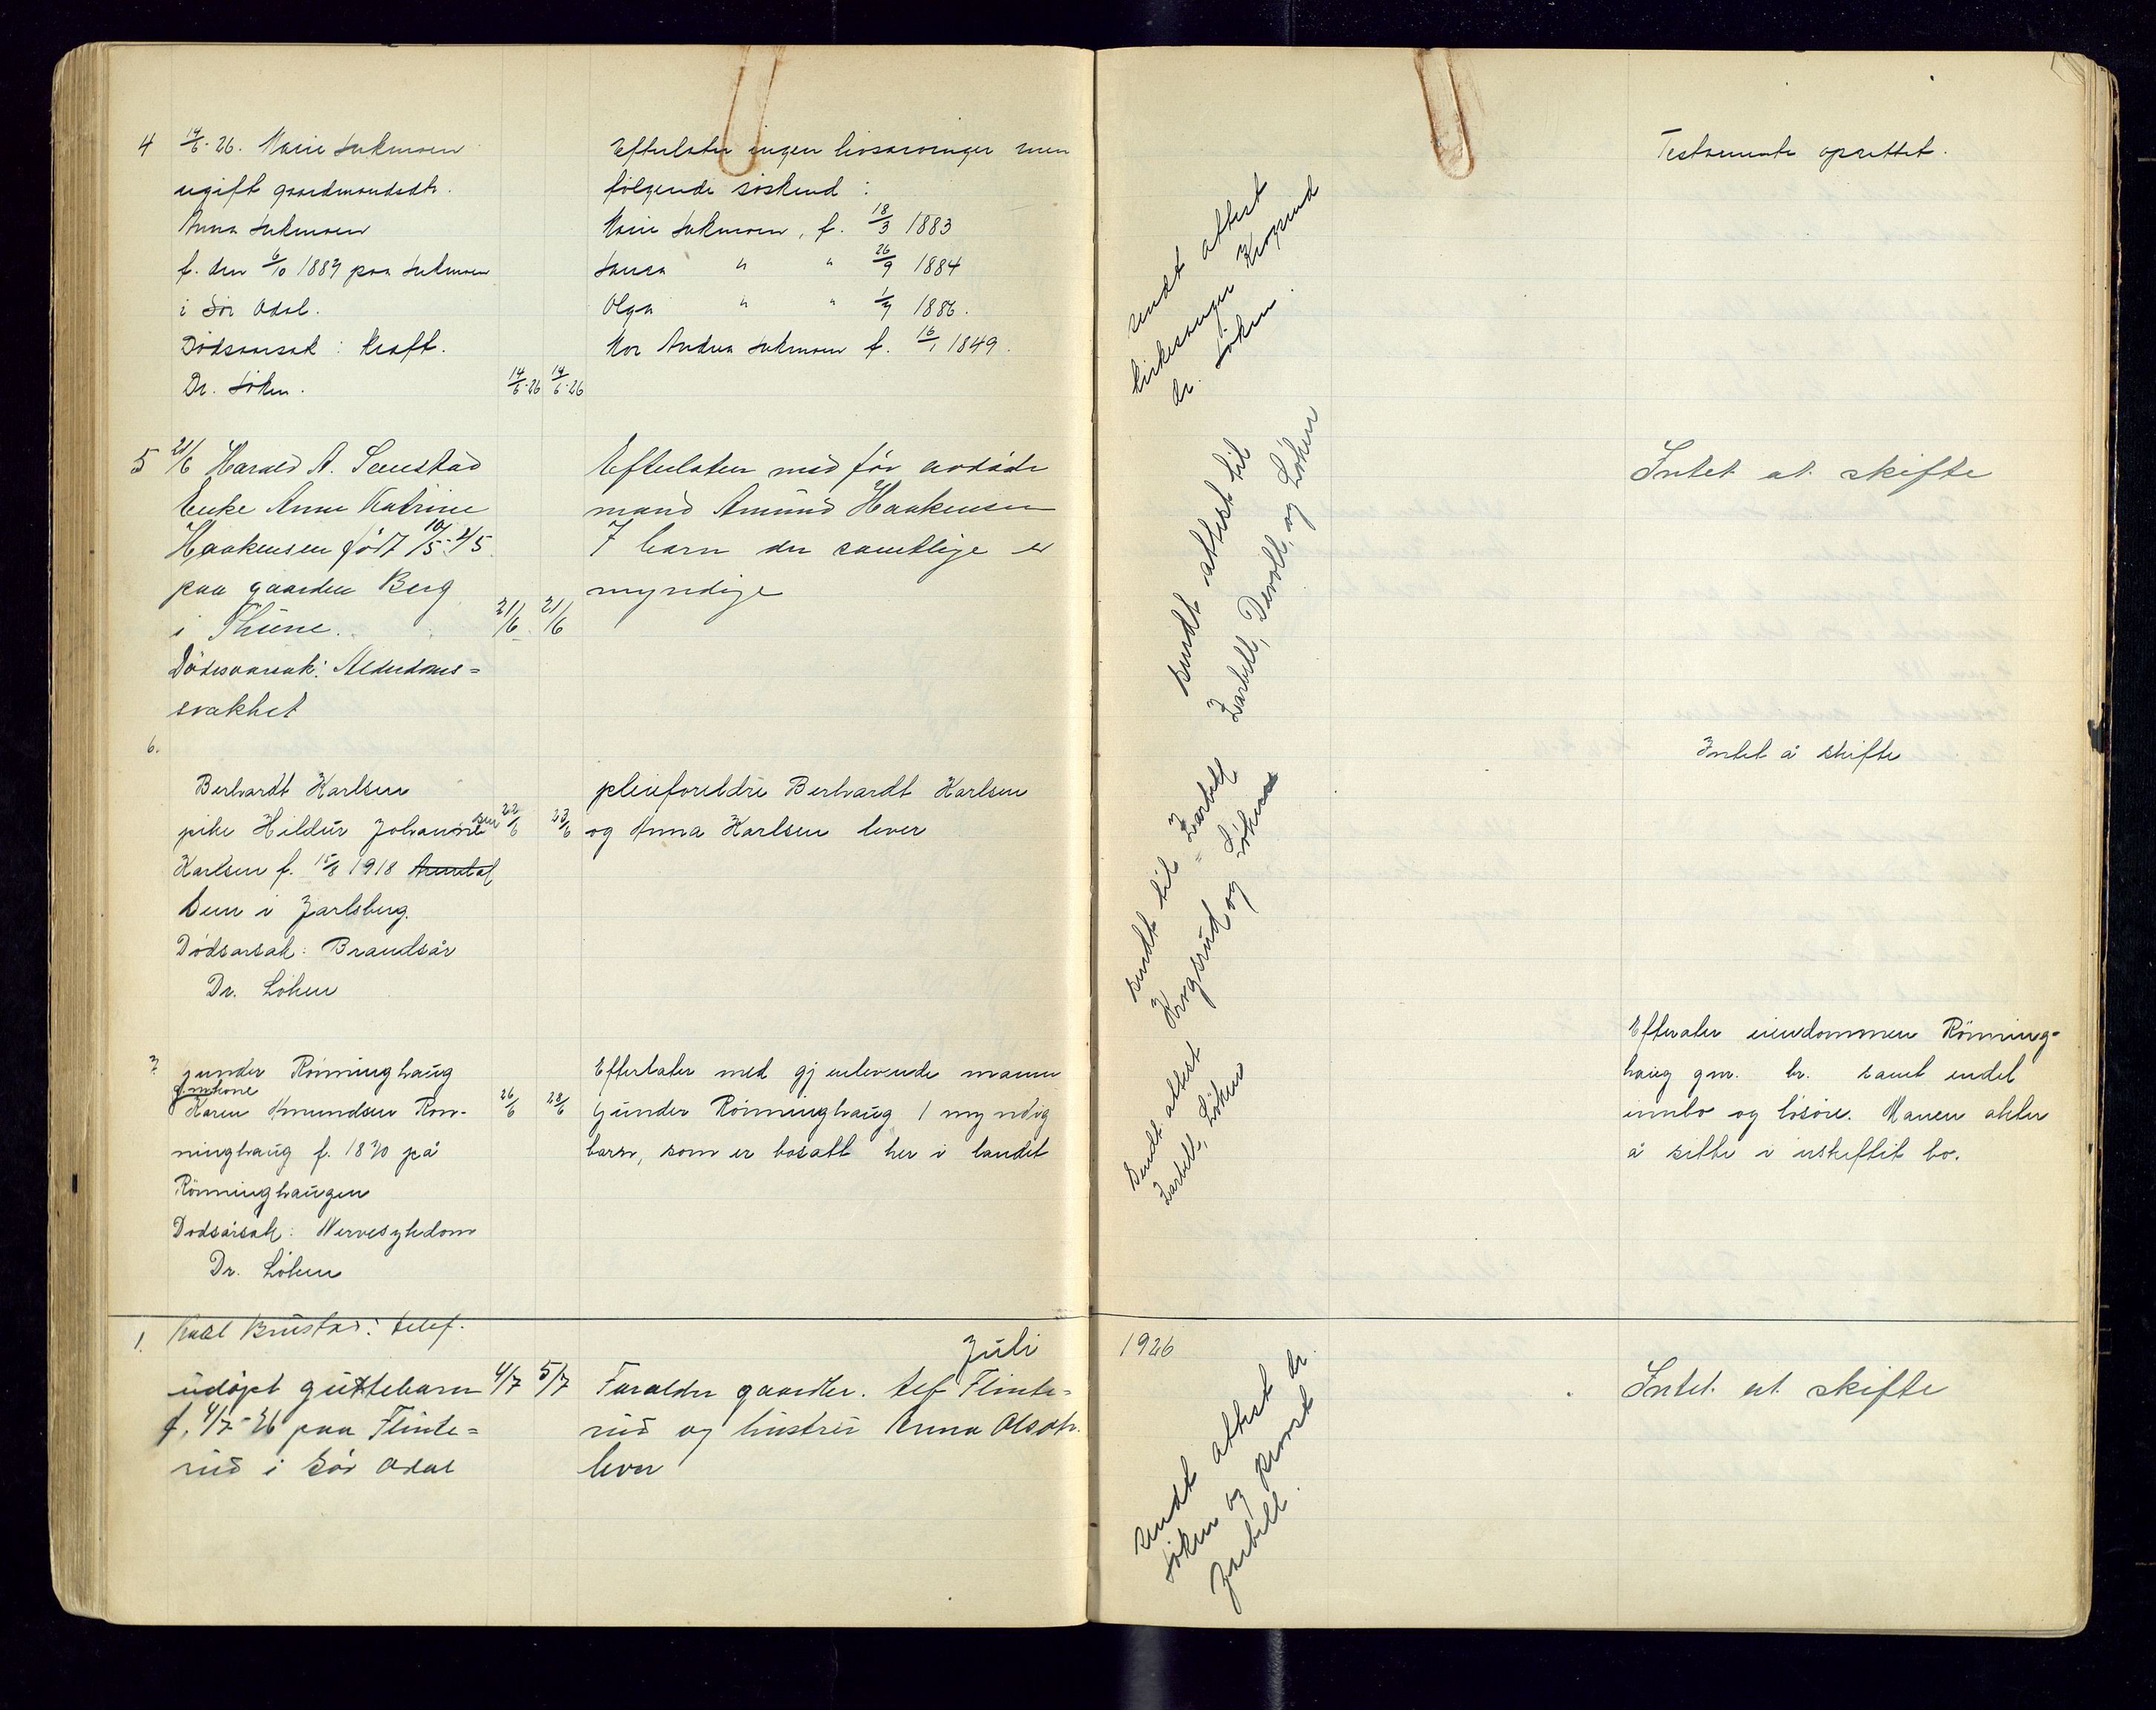 4 14/6-26. Marie Sukmoen
ugift gaardmandsdtr.
Anna Sukmoen
f. den 6/10 1889 paa Sukmoen
i Sør Odal.
Dødsaarsak: Kræft.
Dr. Løken. 14/6-26 14/6-26
Efterlater ingen livsarvinger men
følgende søskend:
Marie Sukmoen, f. 18/3 1883
Laura " " 26/9 1884
Olga " " 1886.
Mor Andrea Sukmoen f. 16/1 1849.
sendt attest
kirkesanger Krogsrud
dr. Løken.
Testamente oprettet.
5 21/6 Harald A. Saustad
Enke Anne Katrine
Haakensen født 10/5-45.
paa gaarden Berg
i Thune. 21/6 21/6
Dødsaarsak: Alderdoms=
svakhet
Efterlater med før avdøde
mand Amund Haakensen
7 barn der samtlige er
myndige
sendt attest til
Zarbell, Devolt, og Løken
Intet at skifte
6.
Berhardt Karlsen
pike Hildur Johanne sen 22/6 23/6
Karlsen f. 15/8 1918
Sem i Jarlsberg.
Dødsarsak: Brandsår
Dr. Löken
pleiforeldre Berhardt Karlsen
og Anna Karlsen lever
sendt til Zarbell
Krogsrud og Löken
Intet å skifte
7 Gunder Rönninghaug
gmkone
Karen Amundsen Rön- 26/6 28/6
ninghaug f. 1870 på
Rönninghaugen
Dodsårsak: Nervesykdom
Dr. Löken
Efterlater med gjenlevende mann
Gunder Rönninghaug 1 myndig
barn, som er bosatt her i landet
Sendt attest
Zarbell, Löken
Efterater eiendommen Rönning-
haug gnr. br. samt endel
innbo og lösöre. Manen akter
å sitte i uskiftet bo.
Juli 1926
1. Karl Brustad: telef.
udöpt guttebarn 4/7 5/7
f. 4/7-26 paa Flinte=
rud i Sör Odal
Foraldre gaardbr. Alf Flinte=
rud og hustru Anna Olsdtr.
lever
sendt attest dr.
Løken og prost
Zarbell.
Intet at skifte